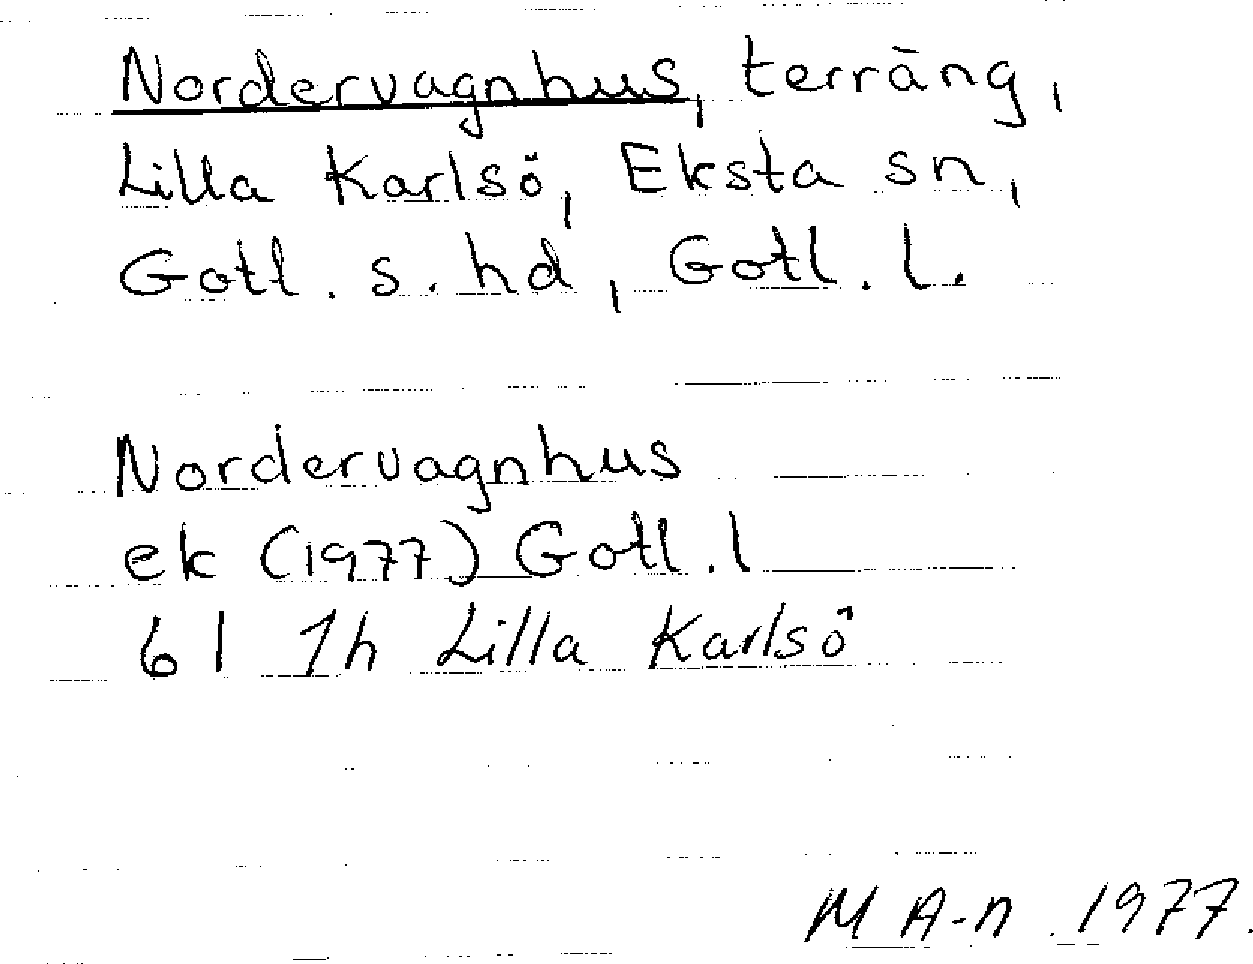 Nordervagnhus, terräng,
Lilla Karlsö, Eksta sn,
Gotl. s. hd, Gotl. l.
Nordervagnhus
ek (1977) Gotl. l
6I 1h Lilla Karlsö
M A-n 1977.